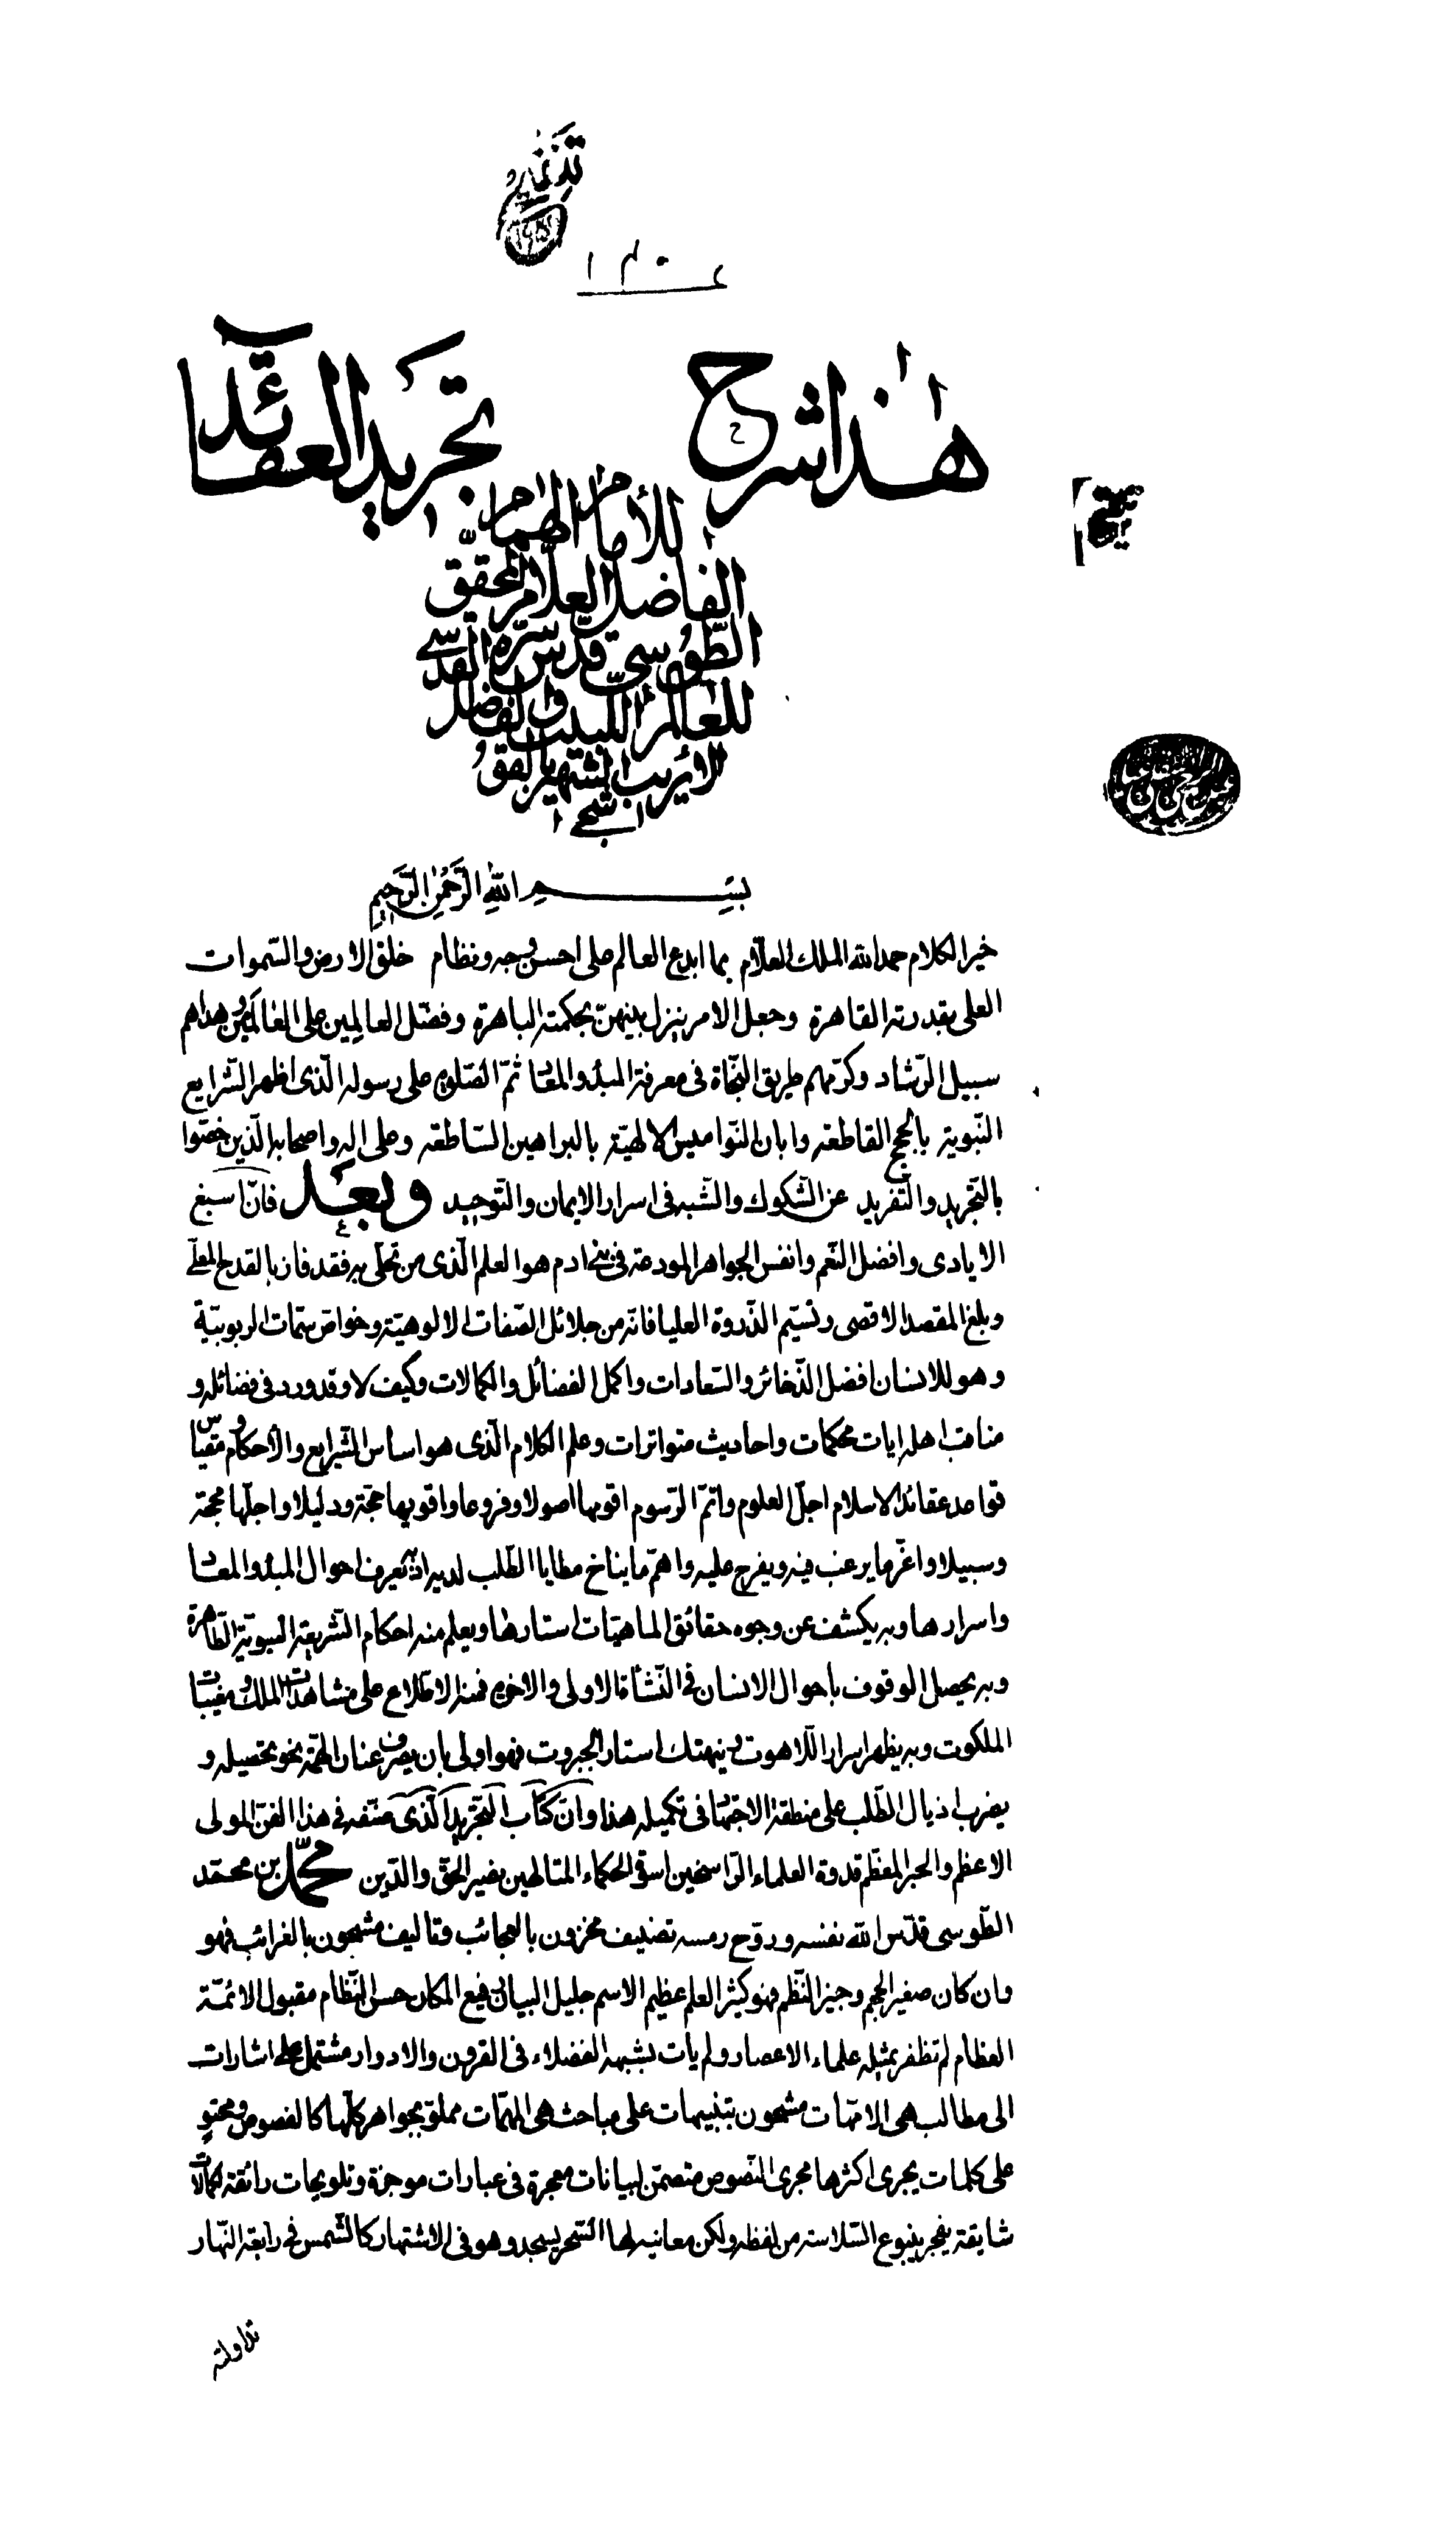 هذا شرح تجريد العقائد
للأمام الهمام
الفاضل العلام المحقق
الطّوسي قدّس سرّه القدسي
للعالم اللبيب والفاضل
الاريب الشتهير بالقو
شجي
بسم الله الرّحمن الرّحيم
خير الكلام حمد الله الملك العلّام بما ابدع العالم على احسن وجه ونظام خلق الارض والسّموات
العلى بقدرته القاهرة وجعل الامر ينزل بينهنّ بحكمته الباهرة وفضّل العالِمين على العالَمين وهداهم
سبيل الرّشاد وكرّمهم طريق النّجاة فى معرفة المبدء والمعاد ثمّ الصّلوة على رسوله الّذى اظهر الشّرايع
النّبوية بالحجج القاطعة وابان النّواميس الالهيّة بالبراهين السّاطعة وعلى اله واصحابه الّذين خصّوا
بالتّجريد والتّفريد عن الشّكوك والشّبه فى اسرار الايمان والتّوحيد وبعد فانّ اسبغ
الايادى وافضل النّعم وانفس الجواهر المودعة فى بنى ادم هو العلم الّذى من تحلّى به فقد فاز بالقدح المعلّى
وبلغ المقصد الاقصى وتسنّم الذّروة العليا فانّه من جلائل الصّفات الالوهيّة وخواصّ سمات الربوبيّة
وهو للانسان افضل الذّخائر والسّعادات واكمل الفضائل والكمالات وكيف لا وقد ورد فى فضائله و
مناقب اهله ايات محكمات واحاديث متواترات وعلم الكلام الّذى هو اساس الشّرايع والأحكام ومقياس
قواعد عقائد الاسلام اجلّ العلوم واتمّ الرّسوم اقومها اصولا وفروعا واقويها حجّة ودليلا واجلّها محجّة
وسبيلا واعزّ ما يرغب فيه ويفرج عليه واهمّ ما يناخ مطايا الطّلب لديه اذ به يعرف احوال المبدء والمعاد
واسرارها وبه يكشف عن وجوه حقائق الماهيّات استارها ويعلم منه احكام الشّريعة النّبويّة الطّاهرة
وبه يحصل الوقوف بأحوال الانسان فى النّشأة الاولى والاخرى فمنه الاطّلاع على مشاهدات الملك ومغيبات
الملكوت وبه يظهر اسرار اللّاهوت وينهتك استار الجبروت فهو اولى بان يصرف عنان الهمّة نحو تحصيله و
يضرب اذيال الطّلب على منطقة الاجتهاد فى تكميله هذا وانّ كتاب التّجريد الّذى صنّفه فى هذا الفنّ المولى
الاعظم والحبر المعظّم قدوة العلماء الرّاسخين اسوة الحكماء المتالهين نصير الحقّ والدّين محمّد بن محمّد
الطّوسى قدّس الله نفسه وروّح رمسه تصنيف مخزون بالعجائب وتاليف مشحون بالغرائب فهو
وان كان صغير الحجم وجيز النّظم فهو كثير العلم عظيم الاسم جليل البيان رفيع المكان حسن النّظام مقبول الائمّة
العظام لم تظفر بمثله علماء الاعصار ولم يات بشبهه الفضلاء فى القرون والادوار مشتمل على اشارات
الى مطالب هى الامّهات مشحون بتنبيهات على مباحث هى المهمّات مملوّ بجواهر كلّها كالفصوص ومحتو
على كلمات يجرى اكثرها مجرى النّصوص متضمّن لبيانات معجزة فى عبارات موجزة وتلويحات رائقة لكمالات
شايقة يفجر ينبوع السّلاسة من لفظه ولكن معانيه لها السّحر يسجد وهو فى الاشتهار كالشّمس فى رابعة النّهار
تداولته